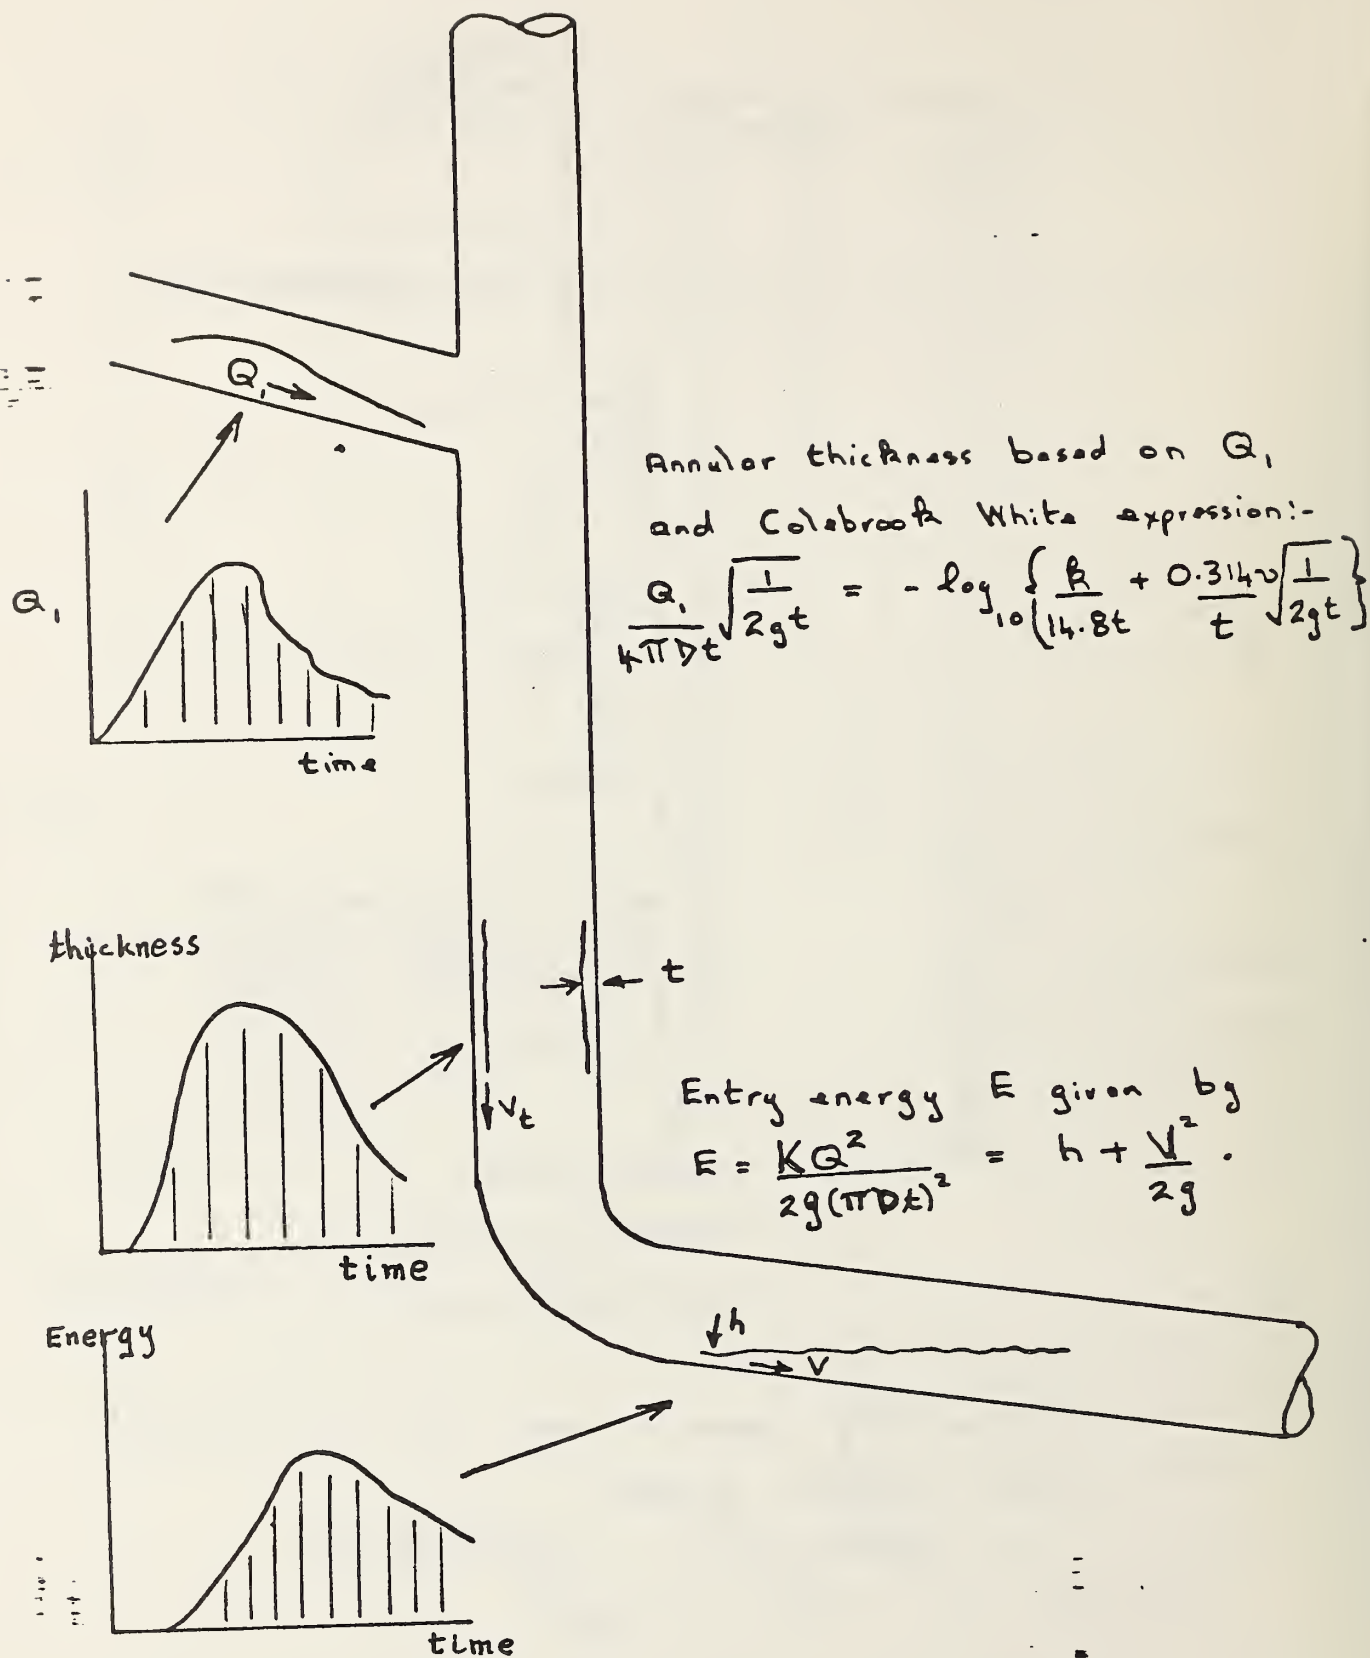 Q₁
Q₁
time
Annular thickness based on Q₁
and Colebrook White expression:-
Q₁/(4πDt) √(1/(2gt)) = - log₁₀ {k/(14.8t) + (0.314ν/t) √(1/(2gt))}
thickness
time
t
Vt
Entry energy E given by
E = KQ²/(2g(πDt)²) = h + V²/(2g) .
h
V
Energy
time